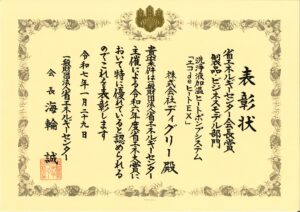 表彰状
省エネルギーセンター会長賞
製品・ビジネスモデル部門
洗浄液加温ヒートポンプシステム
「エコdeヒートEX」
株式会社ディグリー 殿
貴案件は一般財団法人省エネルギーセンター
主催による令和六年度省エネ大賞に
おいて特に優れていると認められる
のでこれを表彰します
令和七年一月二十九日
一般財団法人省エネルギーセンター
会長 海輪 誠